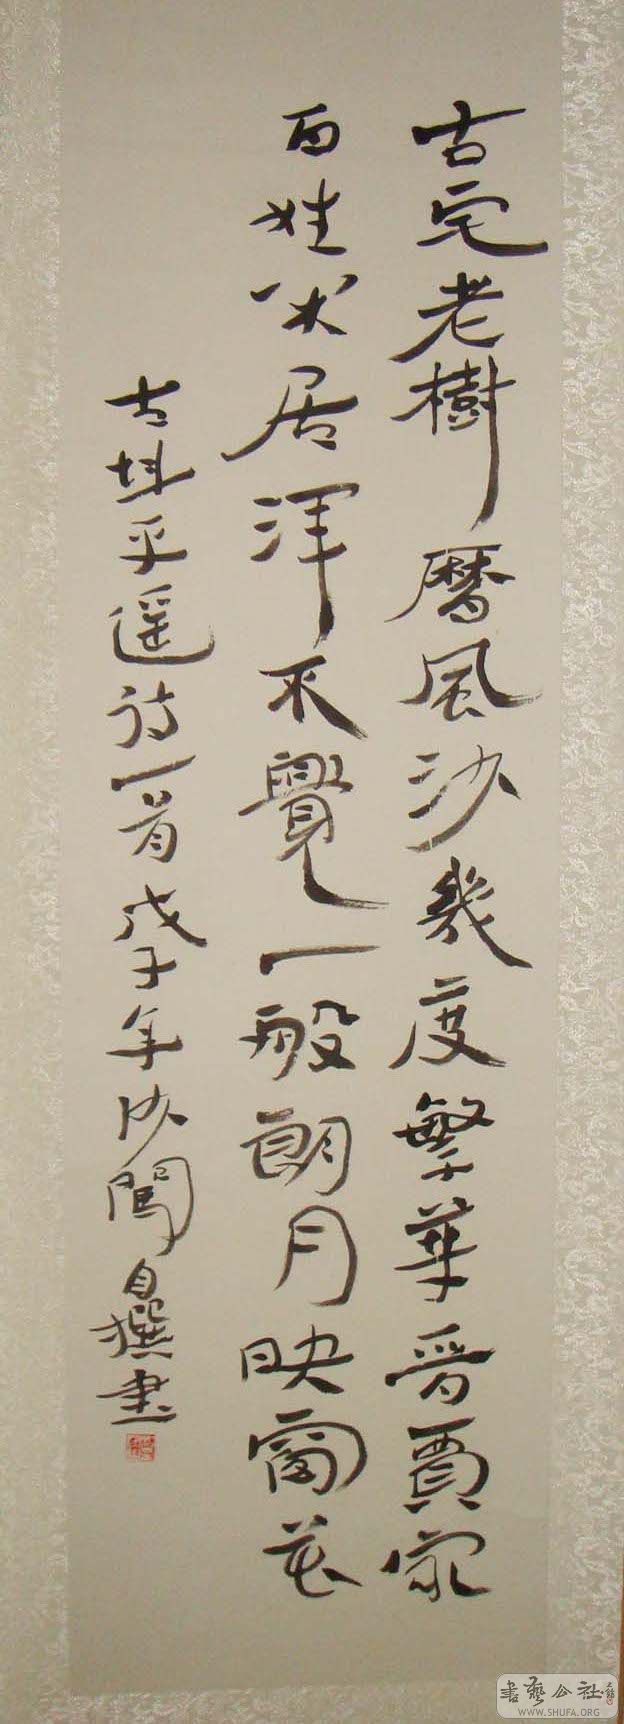 古宅老樹曆風沙幾度繁華晉賈家
百姓以居渾不覺一般朗月映窗花
古城平遥詩一首戊子年沙闖自撰書
書藝公社
WWW.SHUFA.ORG